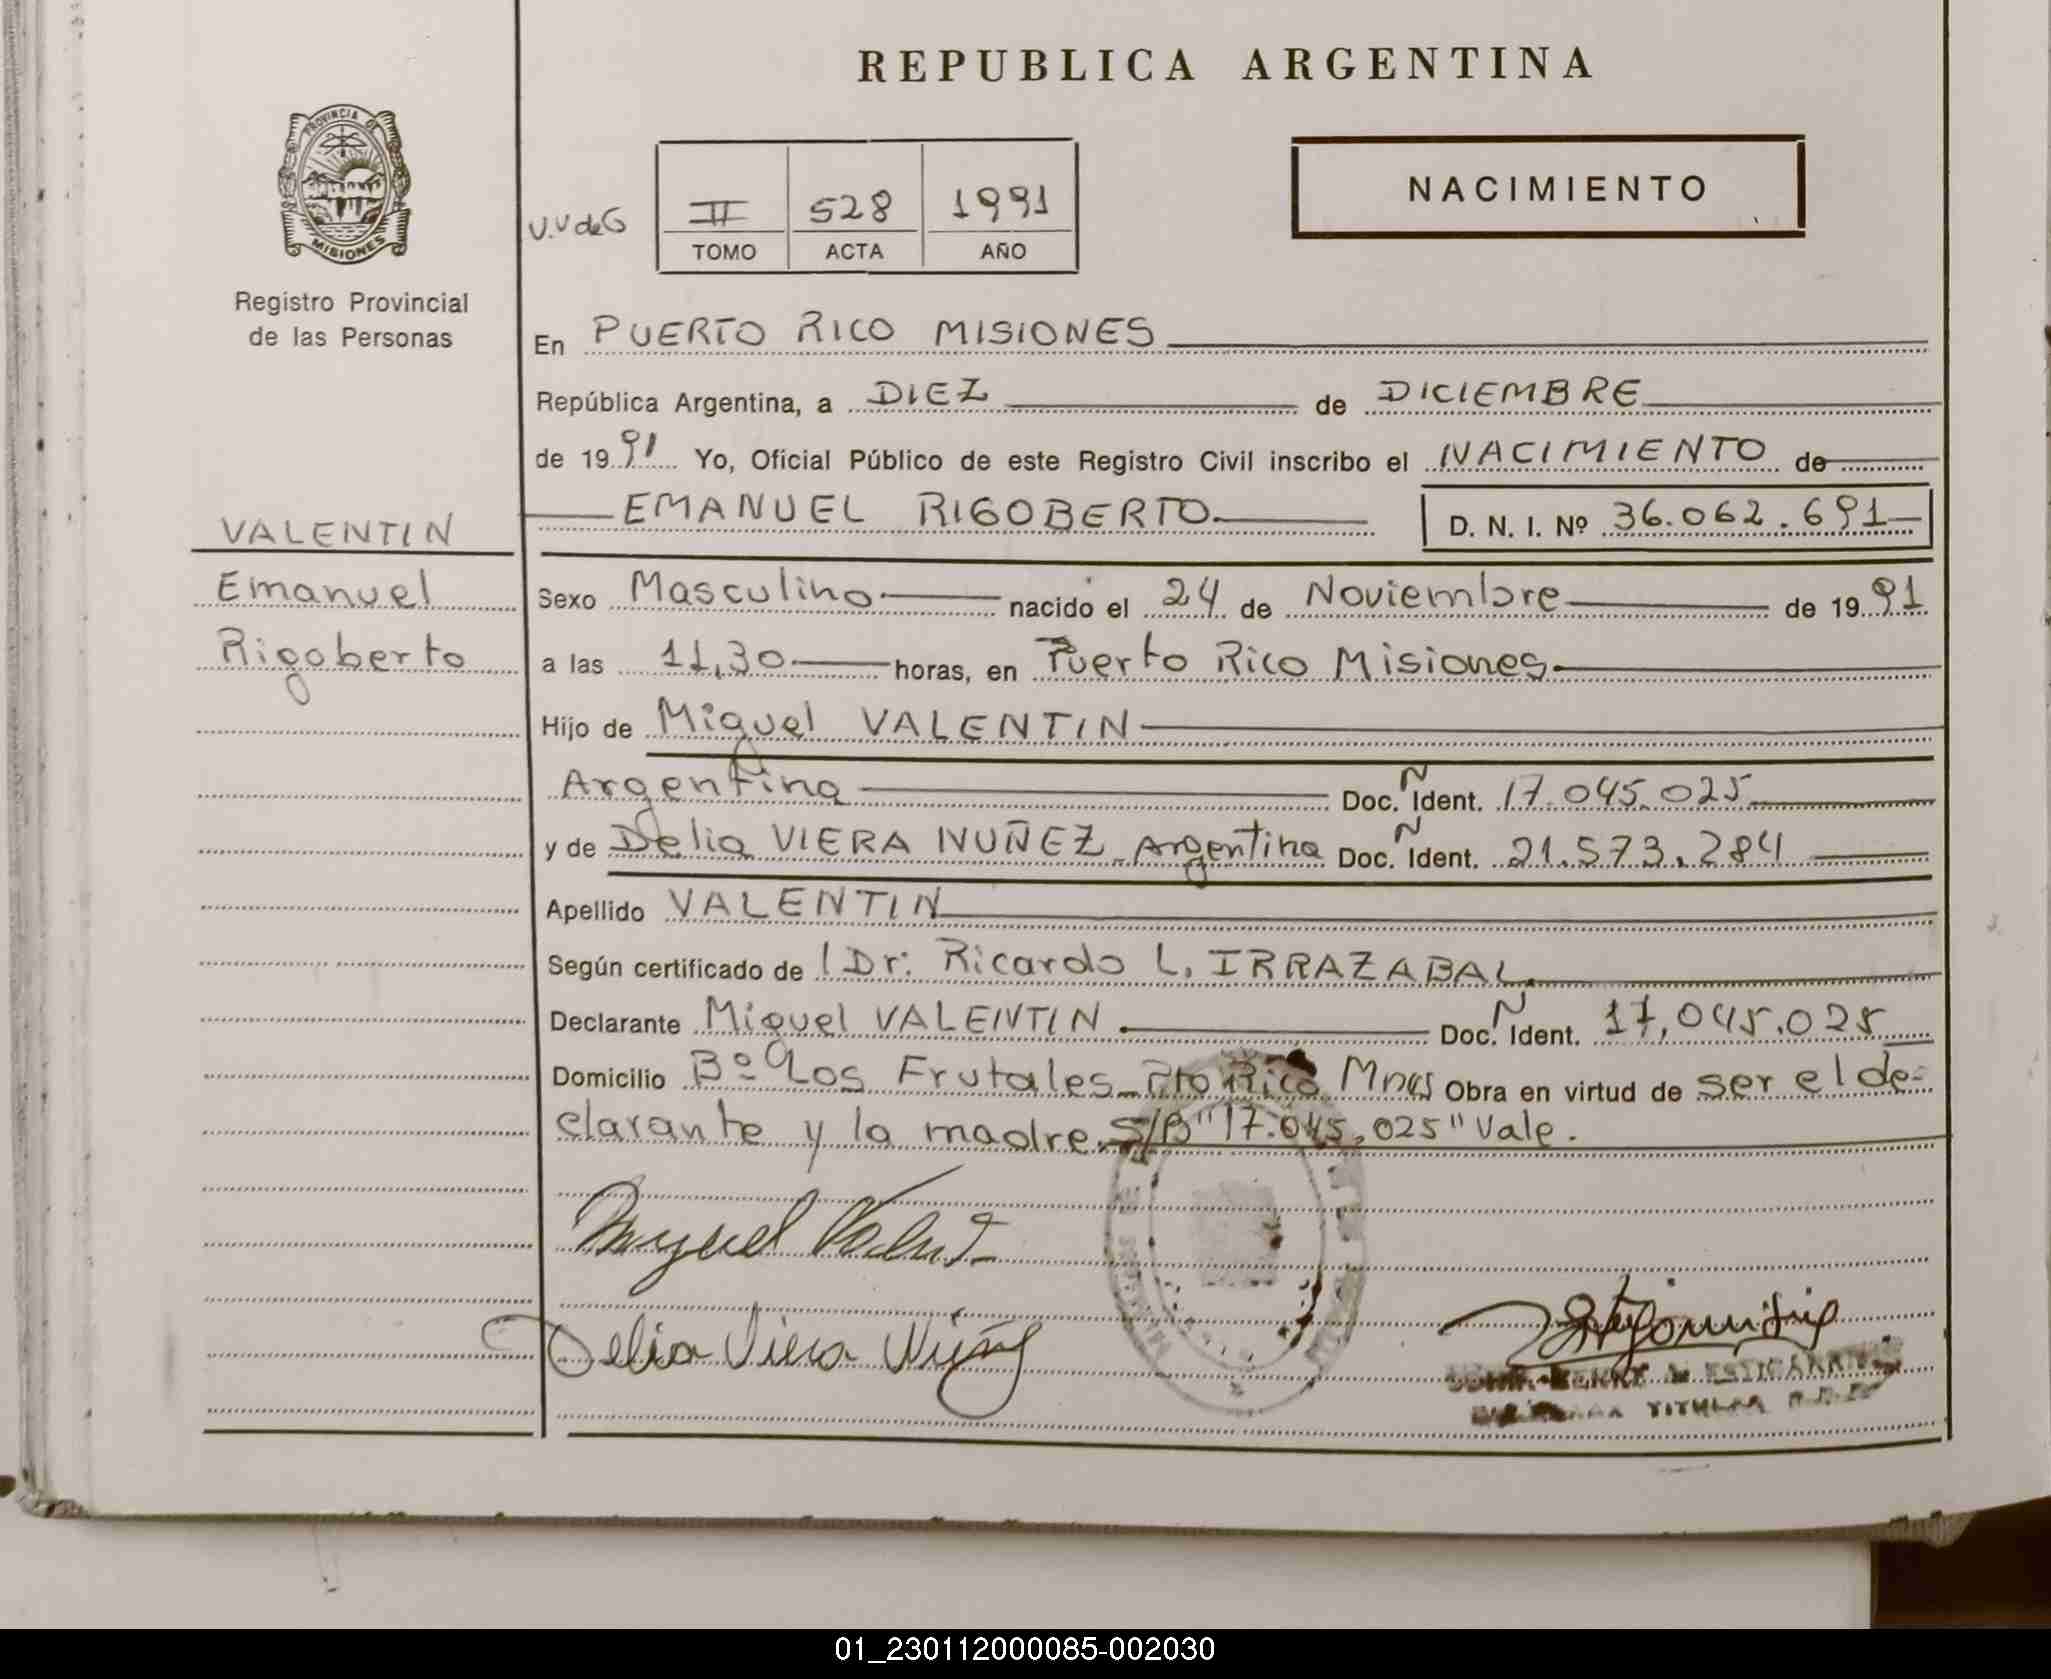 REPUBLICA ARGENTINA
PROVINCIA DE
MISIONES
Registro Provincial
de las Personas
NACIMIENTO
U.V de G
II 528 1991
TOMO ACTA AÑO
En PUERTO RICO MISIONES
República Argentina, a DIEZ de DICIEMBRE
de 19 91 Yo, Oficial Público de este Registro Civil inscribo el NACIMIENTO de
EMANUEL RIGOBERTO D. N. I. Nº 36.062.691
VALENTIN
Emanuel
Rigoberto
Sexo Masculino nacido el 24 de Noviembre de 19 91
a las 11,30 horas, en Puerto Rico Misiones
Hijo de Miguel VALENTIN
Argentina Doc. Ñ Ident. 17.045.025
y de Delia VIERA NUÑEZ Argentina Doc. Ñ Ident. 21.573.284
Apellido VALENTIN
Según certificado de Dr. Ricardo L. IRRAZABAL
Declarante Miguel VALENTIN Doc. Ñ Ident. 17,045.025
Domicilio Bº Los Frutales Pto Rico Mnes Obra en virtud de ser el de-
clarante y la madre. S/B "17.045.025" Vale.
Miguel Valentin
Delia Viera Nuñez
TITULAR
01_230112000085-002030